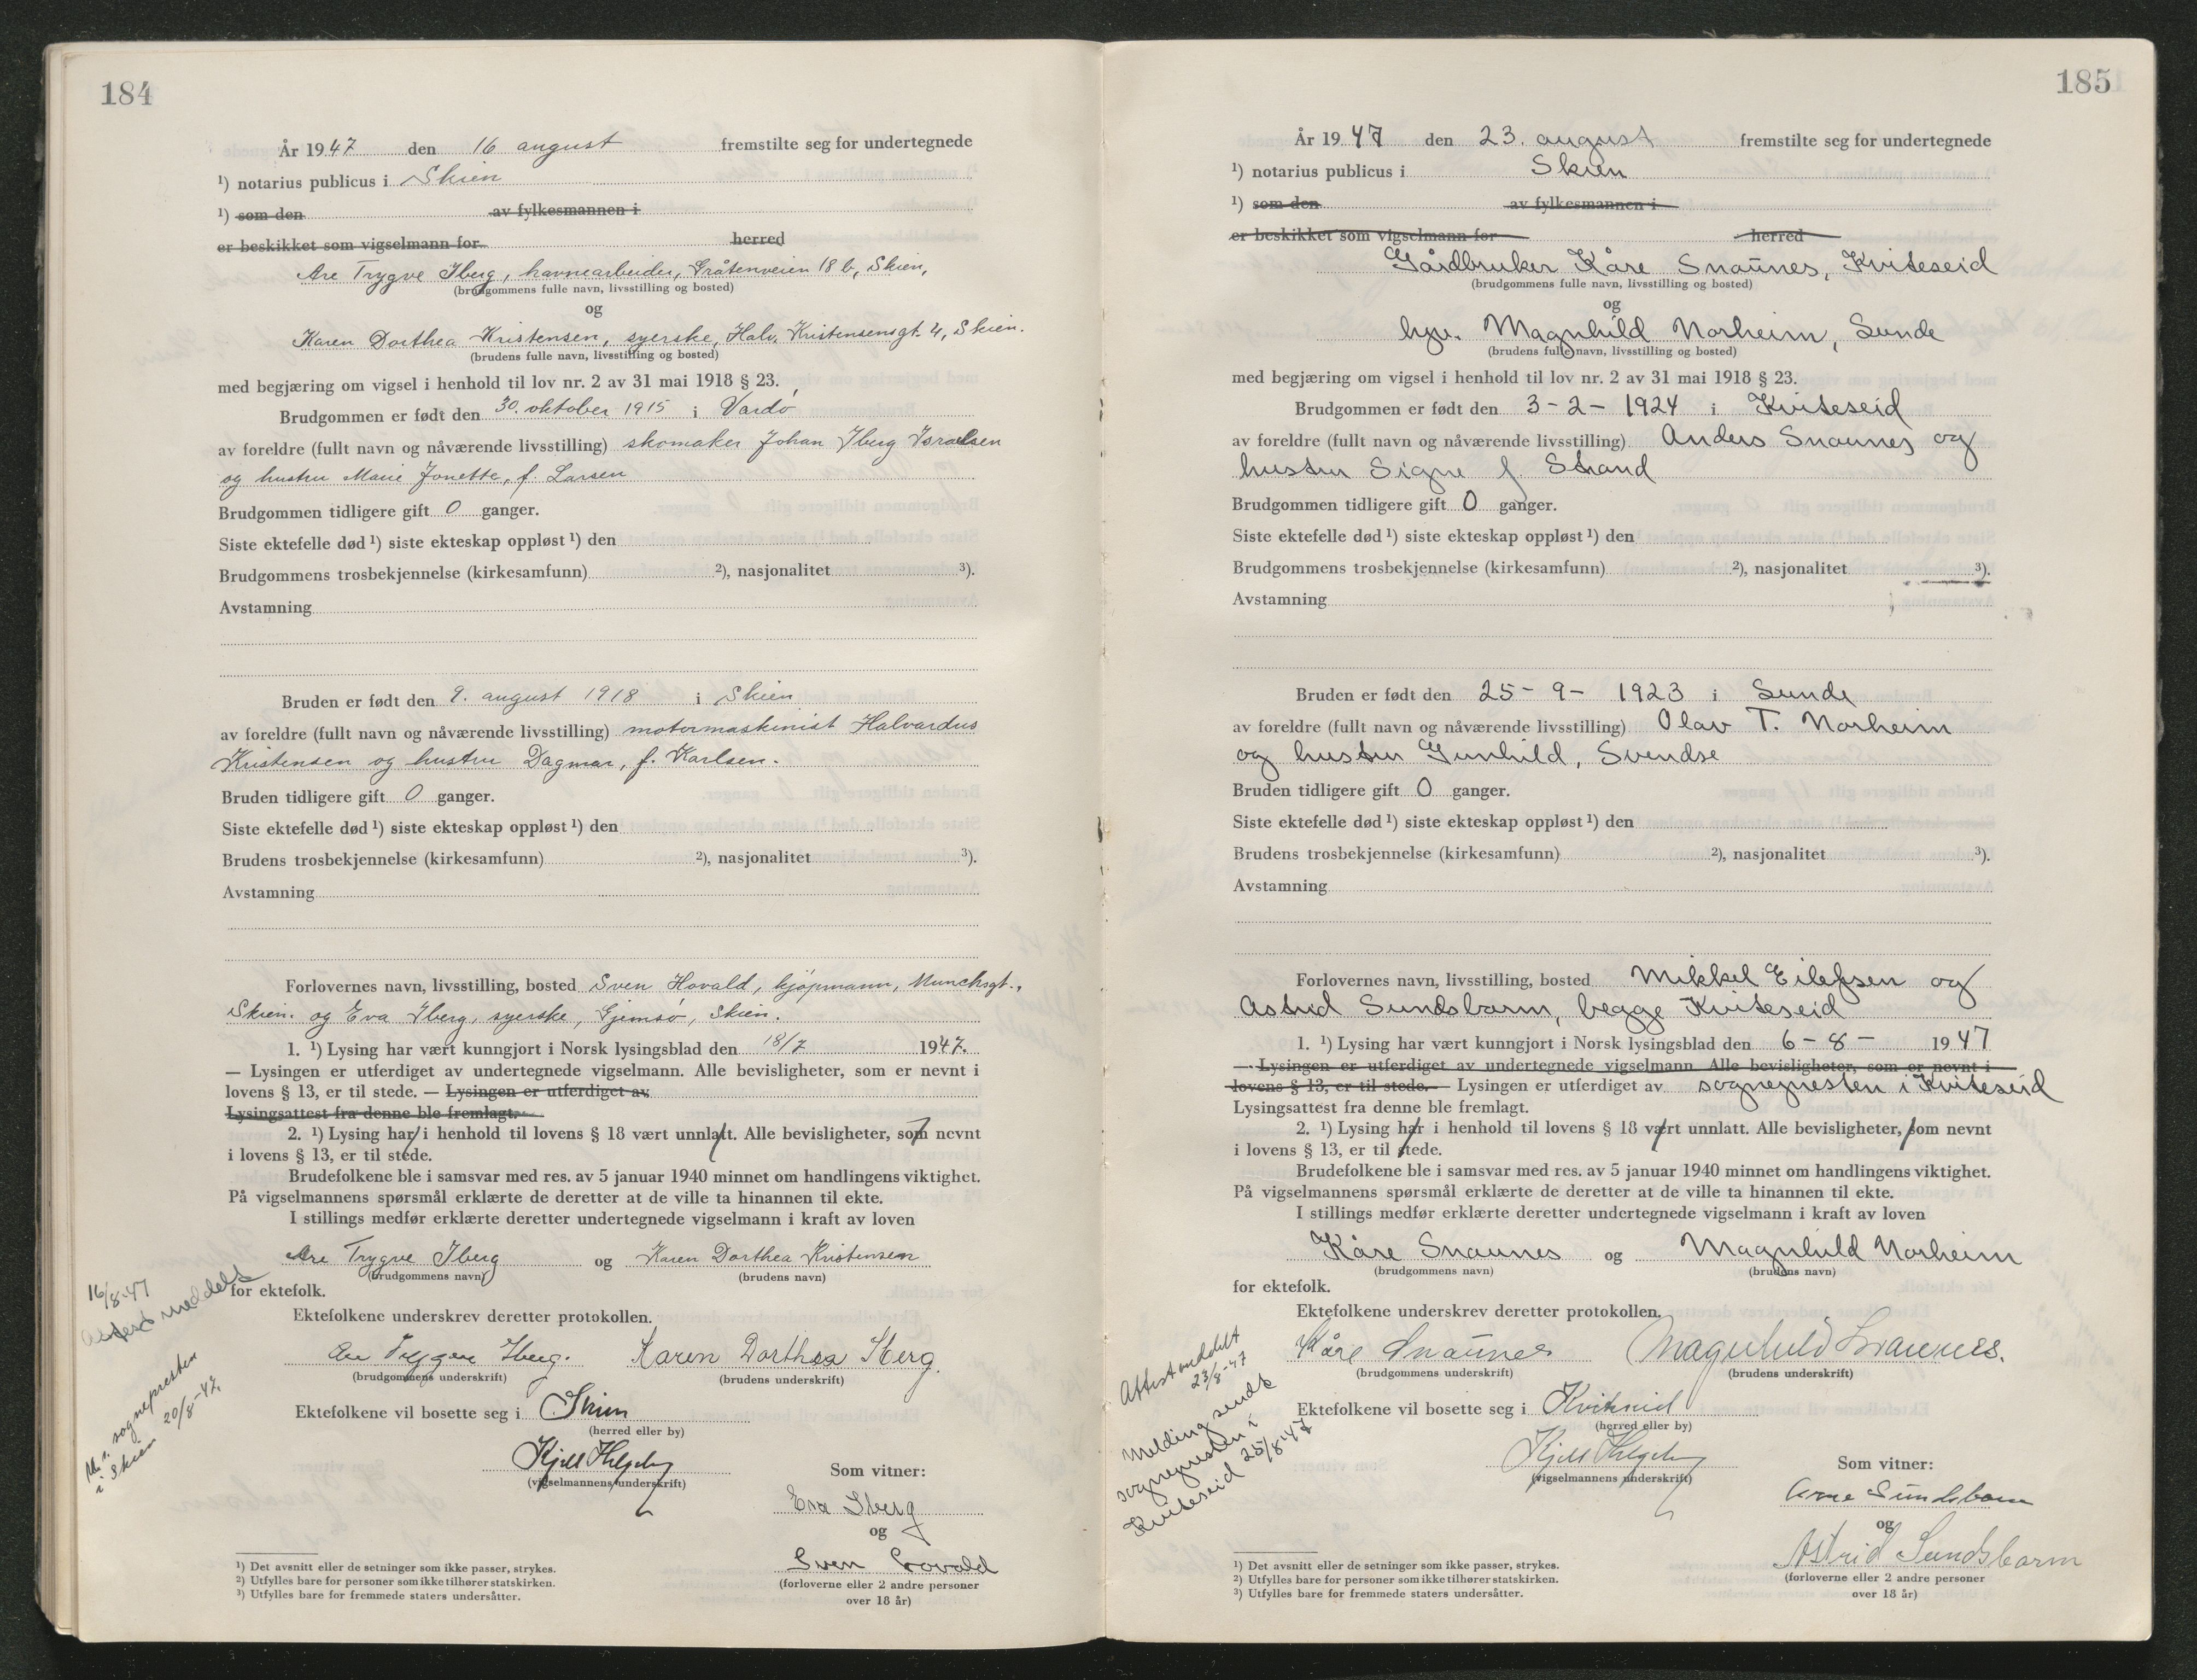 184
År 1947 den 16 august fremstilte seg for undertegnede
¹) notarius publicus i Skien
¹) som den av fylkesmannen i
er beskikket som vigselmann for herred
Are Trygve Iberg, havnearbeider, Gråtenveien 18 b, Skien,
(brudgommens fulle navn, livsstilling og bosted)
og
Karen Dorthea Kristensen, syerske, Halv. Kristensensgt. 4, Skien.
(brudens fulle navn, livsstilling og bosted)
med begjæring om vigsel i henhold til lov nr. 2 av 31 mai 1918 § 23.
Brudgommen er født den 30. oktober 1915 i Vardö
av foreldre (fullt navn og nåværende livsstilling) skomaker Johan Iberg Israelsen
og hustru Marie Jonette, f. Larsen
Brudgommen tidligere gift 0 ganger.
Siste ektefelle død ¹) siste ekteskap oppløst ¹) den
Brudgommens trosbekjennelse (kirkesamfunn) ²), nasjonalitet ³).
Avstamning
Bruden er født den 9. august 1918 i Skien
av foreldre (fullt navn og nåværende livsstilling) motormaskinist Halvardus
Kristensen og hustru Dagmar, f. Karlsen.
Bruden tidligere gift 0 ganger.
Siste ektefelle død ¹) siste ekteskap oppløst ¹) den
Brudens trosbekjennelse (kirkesamfunn) ²), nasjonalitet ³).
Avstamning
Forlovernes navn, livsstilling, bosted Sven Hovald, kjöpmann, Munchsgt.,
Skien. og Eva Iberg, syerske, Gjemsö, Skien.
1. ¹) Lysing har vært kunngjort i Norsk lysingsblad den 18/7 1947.
— Lysingen er utferdiget av undertegnede vigselmann. Alle bevisligheter, som er nevnt i
lovens § 13, er til stede. — Lysingen er utferdiget av
Lysingsattest fra denne ble fremlagt.
2. ¹) Lysing har i henhold til lovens § 18 vært unnlatt. Alle bevisligheter, som nevnt
i lovens § 13, er til stede.
Brudefolkene ble i samsvar med res. av 5 januar 1940 minnet om handlingens viktighet.
På vigselmannens spørsmål erklærte de deretter at de ville ta hinannen til ekte.
I stillings medfør erklærte deretter undertegnede vigselmann i kraft av loven
Are Trygve Iberg og Karen Dorthea Kristensen
(brudgommens navn) (brudens navn)
for ektefolk.
16/8-47
Attest meddelt
Ektefolkene underskrev deretter protokollen.
Are Trygve Iberg. Karen Dorthea Iberg.
(brudgommens underskrift) (brudens underskrift)
sognepresten
i Skien 20/8-47.
Ektefolkene vil bosette seg i Skien
(herred eller by)
Kjell Helgeby
(vigselmannens underskrift)
Som vitner:
Eva Iberg
og
Sven Hovald
(forloverne eller 2 andre personer
over 18 år)
¹) Det avsnitt eller de setninger som ikke passer, strykes.
²) Utfylles bare for personer som ikke tilhører statskirken.
³) Utfylles bare for fremmede staters undersåtter.
185
År 1947 den 23. august fremstilte seg for undertegnede
¹) notarius publicus i Skien
¹) som den av fylkesmannen i
er beskikket som vigselmann for herred
Gårdbruker Kåre Snaunes, Kviteseid
(brudgommens fulle navn, livsstilling og bosted)
og
hgv. Magnhild Norheim, Sunde
(brudens fulle navn, livsstilling og bosted)
med begjæring om vigsel i henhold til lov nr. 2 av 31 mai 1918 § 23.
Brudgommen er født den 3 - 2 - 1924 i Kviteseid
av foreldre (fullt navn og nåværende livsstilling) Anders Snaunes og
hustru Signe f. Strand
Brudgommen tidligere gift 0 ganger.
Siste ektefelle død ¹) siste ekteskap oppløst ¹) den
Brudgommens trosbekjennelse (kirkesamfunn) ²), nasjonalitet ³).
Avstamning
Bruden er født den 25 - 9 - 1923 i Sunde
av foreldre (fullt navn og nåværende livsstilling) Olav T. Norheim
og hustru Gunhild, Svendse
Bruden tidligere gift 0 ganger.
Siste ektefelle død ¹) siste ekteskap oppløst ¹) den
Brudens trosbekjennelse (kirkesamfunn) ²), nasjonalitet ³).
Avstamning
Forlovernes navn, livsstilling, bosted Mikkel Eilefsen og
Astrid Sundsbarm, begge Kviteseid
1. ¹) Lysing har vært kunngjort i Norsk lysingsblad den 6 - 8 - 1947
— Lysingen er utferdiget av undertegnede vigselmann. Alle bevisligheter, som er nevnt i
lovens § 13, er til stede. — Lysingen er utferdiget av sognepresten i Kviteseid
Lysingsattest fra denne ble fremlagt.
2. ¹) Lysing har i henhold til lovens § 18 vært unnlatt. Alle bevisligheter, som nevnt
i lovens § 13, er til stede.
Brudefolkene ble i samsvar med res. av 5 januar 1940 minnet om handlingens viktighet.
På vigselmannens spørsmål erklærte de deretter at de ville ta hinannen til ekte.
I stillings medfør erklærte deretter undertegnede vigselmann i kraft av loven
Kåre Snaunes og Magnhild Norheim
(brudgommens navn) (brudens navn)
for ektefolk.
Ektefolkene underskrev deretter protokollen.
Kåre Snaunes Magnhild Snaunes.
(brudgommens underskrift) (brudens underskrift)
Attest meddelt
23/8-47
Melding sendt
sognepresten i
Kviteseid 25/8-47
Ektefolkene vil bosette seg i Kviteseid
(herred eller by)
Kjell Helgeby
(vigselmannens underskrift)
Som vitner:
Arne Sundsbarm
og
Astrid Sundsbarm
(forloverne eller 2 andre personer
over 18 år)
¹) Det avsnitt eller de setninger som ikke passer, strykes.
²) Utfylles bare for personer som ikke tilhører statskirken.
³) Utfylles bare for fremmede staters undersåtter.